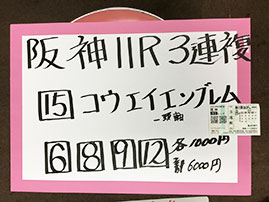 阪神11R3連複
15 コウエイエンブレム
一頭軸
6 8 9 12 各1000円
計6000円